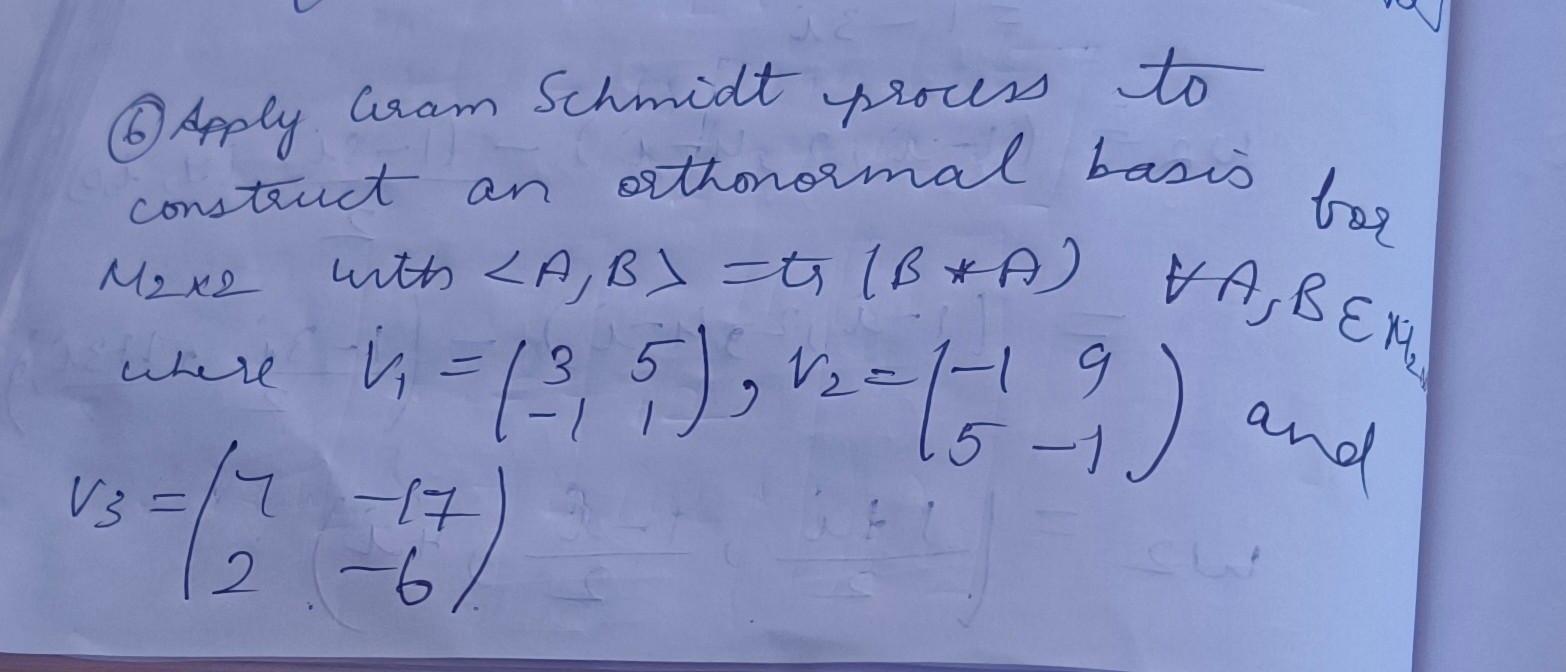 ⑥ Apply Gram Schmidt process to
construct an orthonormal basis for
M2x2 with <A,B> = tr (B*A) ∀A,B ∈ M2x2
where V1 = (3 5; -1 1), V2 = (-1 9; 5 -1) and
V3 = (7 -17; 2 -6).